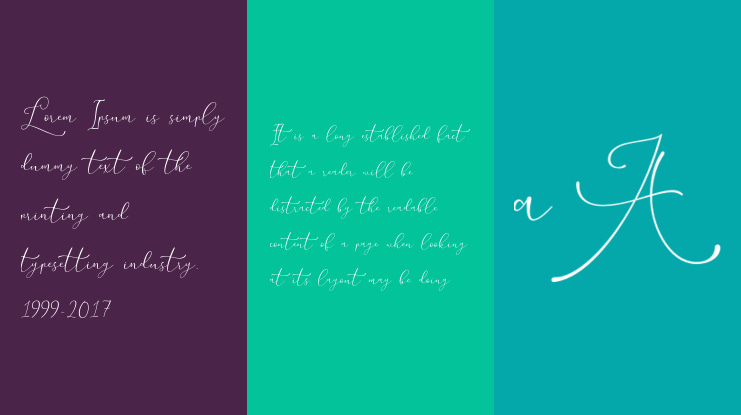 Lorem Ipsum is simply
dummy text of the
printing and
typesetting industry.
1999-2017
It is a long established fact
that a reader will be
distracted by the readable
content of a page when looking
at its layout may be doing
a A